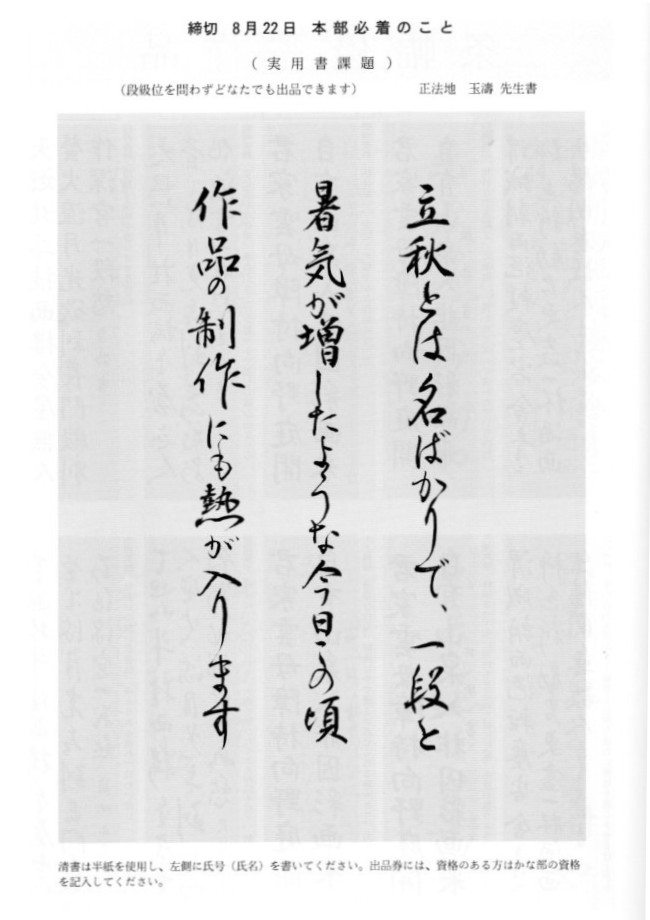 締切 8月22日 本部必着のこと
(実用書課題)
(段級位を問わずどなたでも出品できます) 正法地 玉濤 先生書
立秋とは名ばかりで、一段と
暑気が増したような今日この頃
作品の制作にも熱が入ります
清書は半紙を使用し、左側に氏号(氏名)を書いてください。出品券には、資格のある方はかな部の資格
を記入してください。